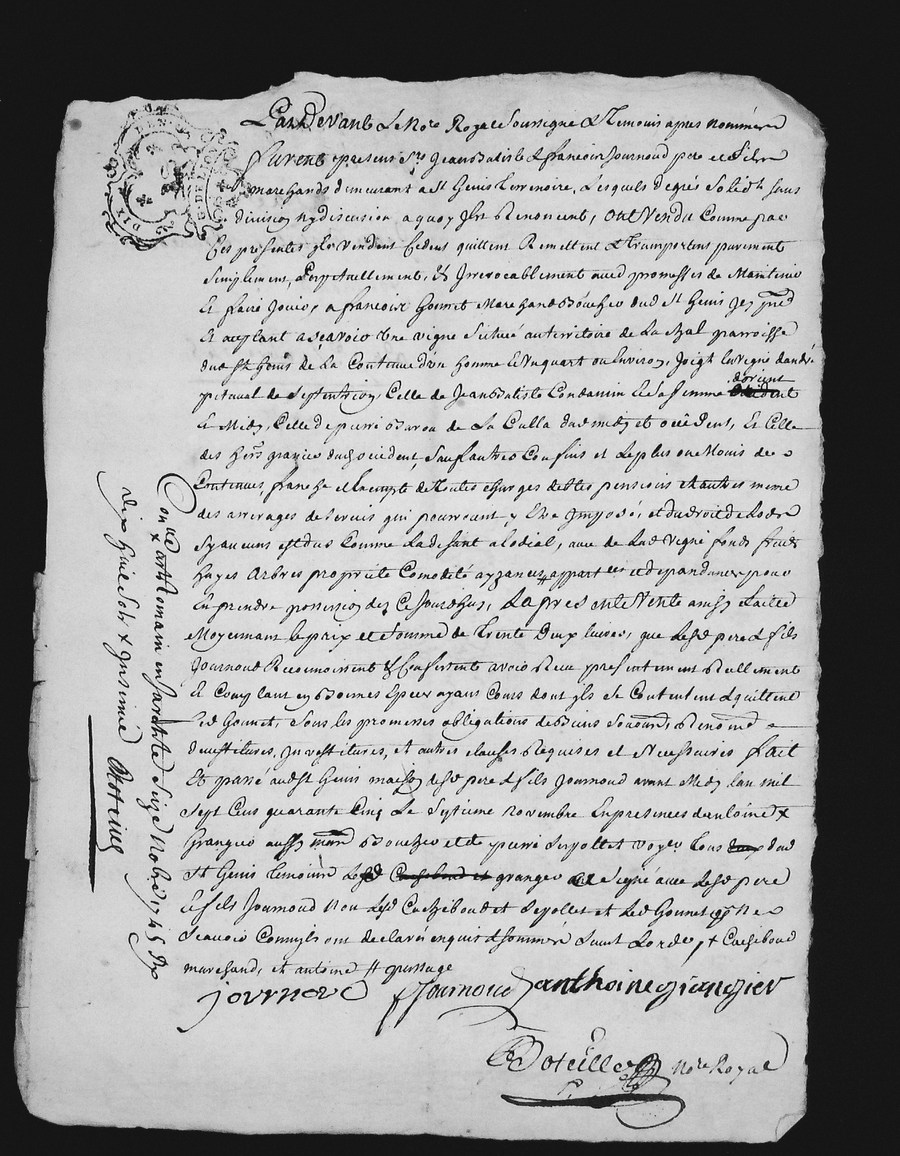 Pardevant le Nore Royal Soussigné & temoins apres nommés
furent presens Srs Jean Batiste & francois Journoud pere et fils
marchands demeurant a St Genis terrenoire, Lesquels de grés solidt sans
division ny discusion a quoy ils Renoncent, ont Vendu comme par
Ces presentes ils vendent cedent quittent Remettent & transportent purement
simplement, perpetuellement, & Irrevocablement avec promesses de Maintenir
et faire Jouir, a francois Gonnet Marchand Boucher dud St Genis Icy pnt
et acceptant a scavoir Une vigne Scituée au territoire de La parroisse
dud St Genis de La Contenue d'en homme et un quart ou Environ, Joigt la vigne d'andré
pitaval de septentrion, Celle de Jean Batiste Condamin et de sa femme d'orient
et Midy, Celle de pierre de La Culla dud midy et occident, et Celle
des hers granier dud occident, sauf autres Confins et le plus ou Moins de
Contenue, franche et Exempte de toutes charges debtes pensions et autres meme
des arrerages de servis qui pourroient y etre Imposés, et du droit de Lods
sy aucuns est dus Comme La disant alodial, avec de Lad Vigne fonds fruits
hayes Arbres proprieté Comodité ayzances appartces et dependances pour
En prendre possession dez Ce Jourdhuy, La presente Vente ainsy faitte
Moyennant le prix et somme de trente deux livres, que Lesd pere & fils
Journoud Reconnoissent & Confessent avoir Receu presentement Reellement
et Comptant en Bonnes Especes ayant Cours dont ils se Contentent & quittent
led Gonnet, sous les promesses obligations de Biens
devestitures, Investitures, et autres clauses Requises et Necessaires fait
et passé aud St Genis maison desd pere & fils Journoud avant Midy Lan mil
sept Cens quarante Cinq Le septieme novembre En presences d'antoine +
Granger aussy mard Boucher et de pierre Seyollet tous dud
St Genis temoins granger a signé avec Lesd pere
et fils Journoud non Led Cachiboud et Seyollet et led Gonnet pr ne
scavoir Comm ils ont declaré enquis & sommés suivt Lordce, + Cachiboud
marchand, et antoine # passage
journoud fJournoud anthoine grangier
Boteille nore Royal
Conlé a st Chomain en Jarest le seize Nobre 1745 Rx
dix huit sols + Insinué Boteille
DIX DEN
G. DE LION